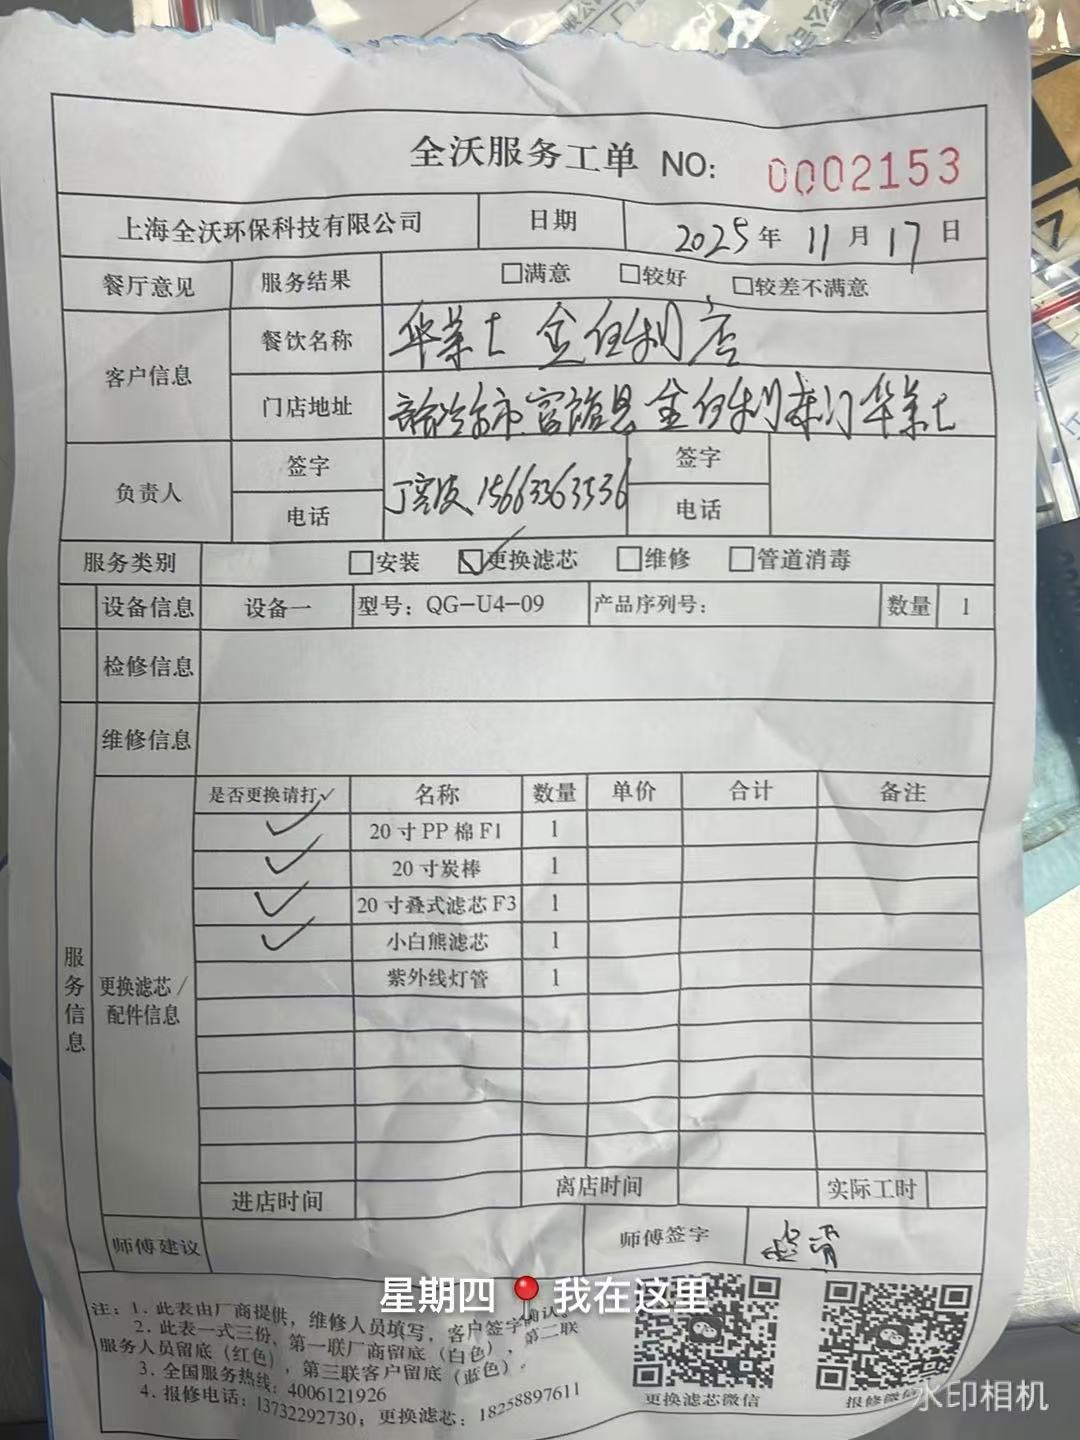 全沃服务工单 NO: 0002153
上海全沃环保科技有限公司 日期 2025年 11月 17日
餐厅意见 服务结果 □满意 □较好 □较差不满意
客户信息 餐饮名称 华莱士 金伯利店
门店地址 市富裕县金伯利东门华莱士
负责人 签字 电话 丁 15663363536 签字 电话
服务类别 □安装 ☑更换滤芯 □维修 □管道消毒
设备信息 设备一 型号：QG-U4-09 产品序列号： 数量 1
检修信息
维修信息
服务信息
更换滤芯/配件信息
是否更换请打✓ 名称 数量 单价 合计 备注
✓ 20寸PP棉F1 1
✓ 20寸炭棒 1
✓ 20寸叠式滤芯F3 1
✓ 小白熊滤芯 1
紫外线灯管 1
进店时间 离店时间 实际工时
师傅建议 师傅签字
星期四 📍我在这里
注：1. 此表由厂商提供，维修人员填写，客户签字确认。
2. 此表一式三份，第一联厂商留底（白色），第二联
服务人员留底（红色），第三联客户留底（蓝色）。
3. 全国服务热线：4006121926
4. 报修电话：13732292730；更换滤芯：18258897611
更换滤芯微信 报修微信
水印相机